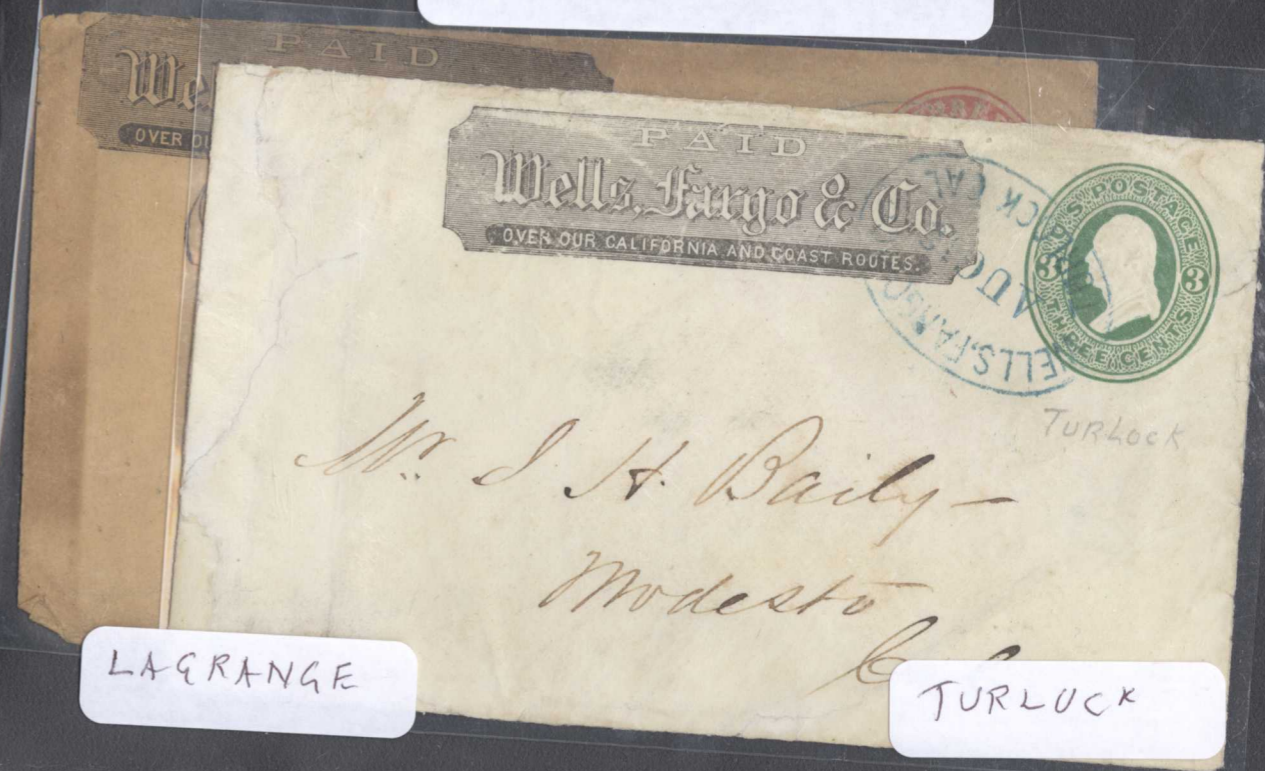 PAID
We
OVER OU
PAID
Wells, Fargo & Co.
OVER OUR CALIFORNIA AND COAST ROUTES.
CK CAL
AUG
ELLS, FARGO
U.S. POSTAGE
3 3
THREE CENTS
TURLOCK
Mr. I H. Baily
Modesto
LAGRANGE
TURLUCK